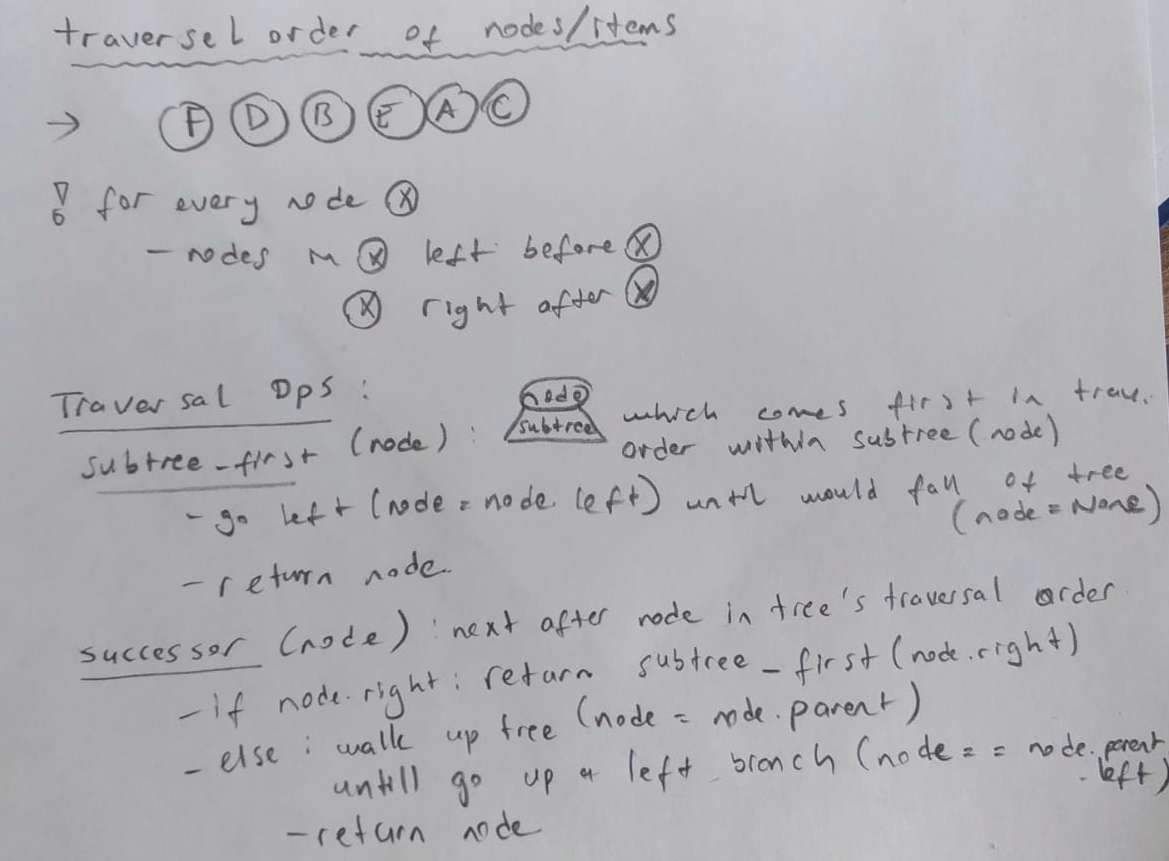 traversel order of nodes/items
→ F D B E A C
for every node X
- nodes in X left before X
X right after X
Traversal Ops :
subtree-first (node) : node subtree which comes first in trav.
order within subtree (node)
- go left (node = node.left) until would fall of tree
(node = None)
- return node.
successor (node) : next after node in tree's traversal order
- if node.right : return subtree_first (node.right)
- else : walk up tree (node = node.parent)
untill go up a left branch (node == node.parent
.left)
- return node